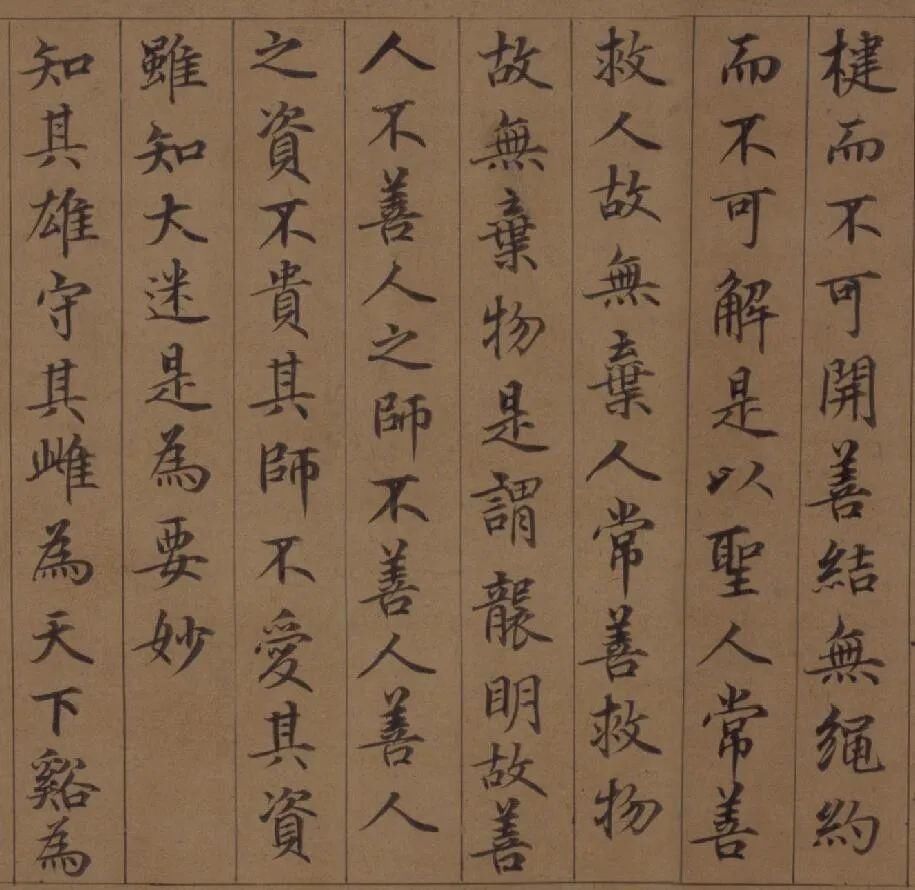 楗而不可開善結無繩約
而不可解是以聖人常善
救人故無棄人常善救物
故無棄物是謂襲明故善
人不善人之師不善人善人
之資不貴其師不愛其資
雖知大迷是為要妙
知其雄守其雌為天下谿為